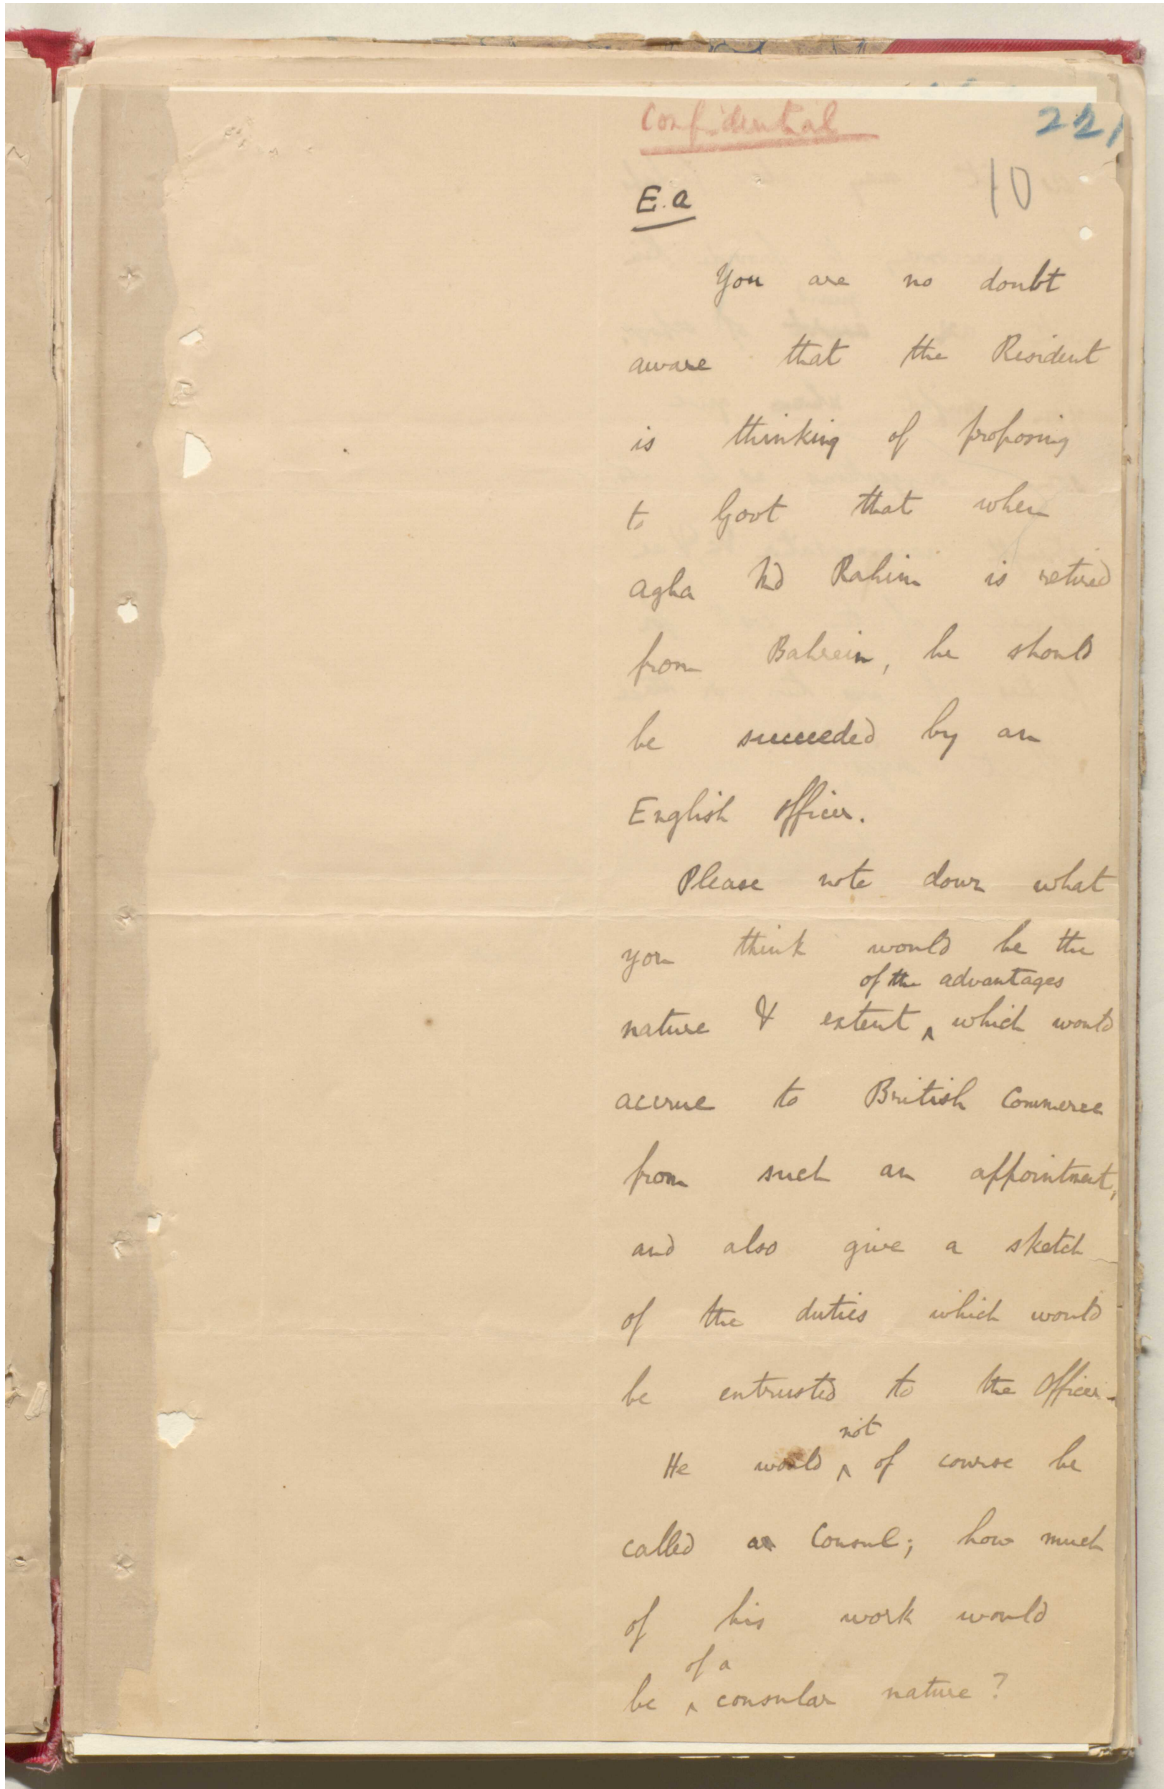 Confidential
221
10
E. a
You are no doubt
aware that the Resident
is thinking of proposing
to Govt that when
Agha Md Rahim is retired
from Bahrein, he should
be succeeded by an
English officer.
Please note down what
you think would be the
of the advantages
nature & extent ‸ which would
accrue to British Commerce
from such an appointment,
and also give a sketch
of the duties which would
be entrusted to the officer.
not
He would ‸ of course be
called a Consul; how much
of his work would
of a
be ‸ consular nature?